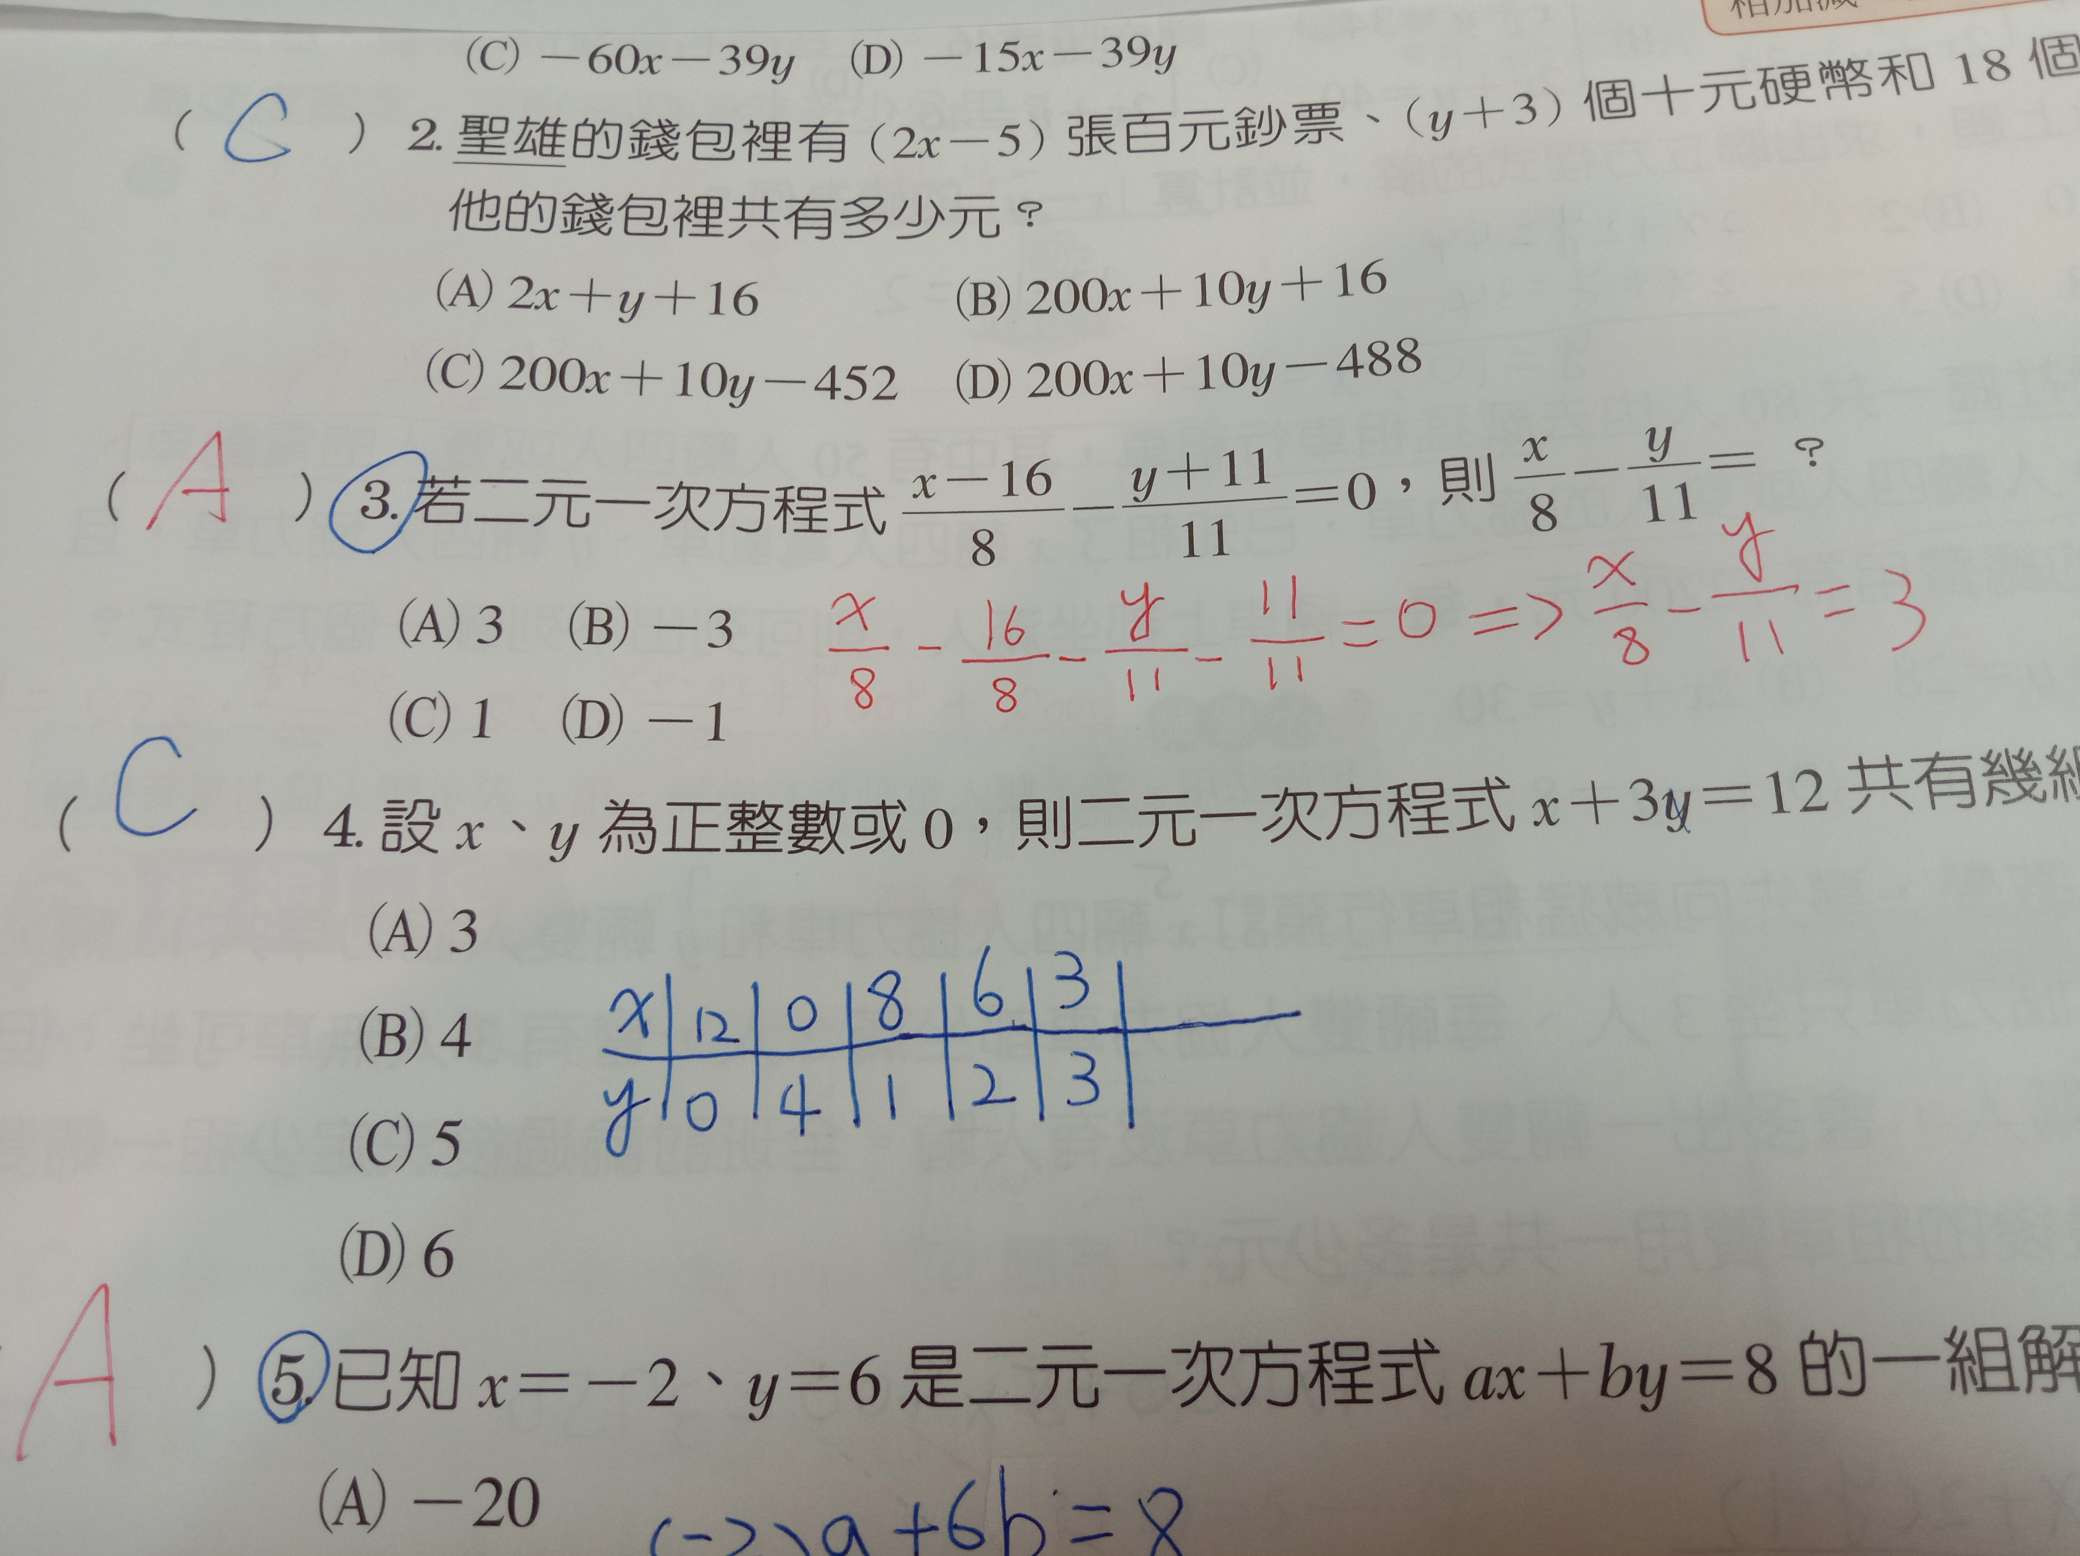 (C) －60x－39y (D) －15x－39y
( C ) 2. 聖雄的錢包裡有（2x－5）張百元鈔票、（y＋3）個十元硬幣和 18 個
他的錢包裡共有多少元？
(A) 2x＋y＋16 (B) 200x＋10y＋16
(C) 200x＋10y－452 (D) 200x＋10y－488
( A ) 3. 若二元一次方程式 (x－16)/8 － (y＋11)/11 ＝0，則 x/8 － y/11 ＝ ？
(A) 3 (B) －3
x/8 - 16/8 - y/11 - 11/11 = 0 => x/8 - y/11 = 3
(C) 1 (D) －1
( C ) 4. 設 x、y 為正整數或 0，則二元一次方程式 x＋3y＝12 共有幾組
(A) 3
(B) 4
x 12 0 8 6 3
y 0 4 1 2 3
(C) 5
(D) 6
A ) 5. 已知 x＝－2、y＝6 是二元一次方程式 ax＋by＝8 的一組解
(A) －20
(-2)a+6b=8